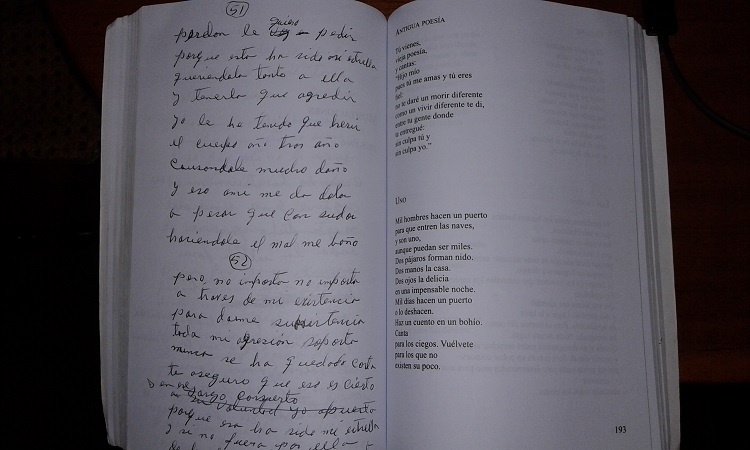 51
quiero
perdon le pedir
porque esta ha sido mi estrella
queriendola tanto a ella
y tenerla que agredir
yo la he tenido que herir
el cuerpo año tras año
causandole mucho daño
y eso ami me da dolor
a pesar que con sudor
haciendole el mal me baño
52
pero no importa no importa
a traves de mi existencia
para darme subsistencia
toda mi agresión soporta
nunca se ha quedado corta
te aseguro que eso es cierto
porque esa ha sido mi estrella
y si no fuera por ella
ANTIGUA POESÍA
Tú vienes,
vieja poesía,
y cantas:
"Hijo mío
pues tú me amas y tú eres
fiel:
no te daré un morir diferente
como un vivir diferente te di,
entre tu gente donde
te entregué:
sin culpa tú y
sin culpa yo."
UNO
Mil hombres hacen un puerto
para que entren las naves,
y son uno,
aunque puedan ser miles.
Dos pájaros forman nido.
Dos manos la casa.
Dos ojos la delicia
en una impensable noche.
Mil días hacen un puerto
o lo deshacen.
Haz un cuento en un bohío.
Canta
para los ciegos. Vuélvete
para los que no
existen su poco.
193